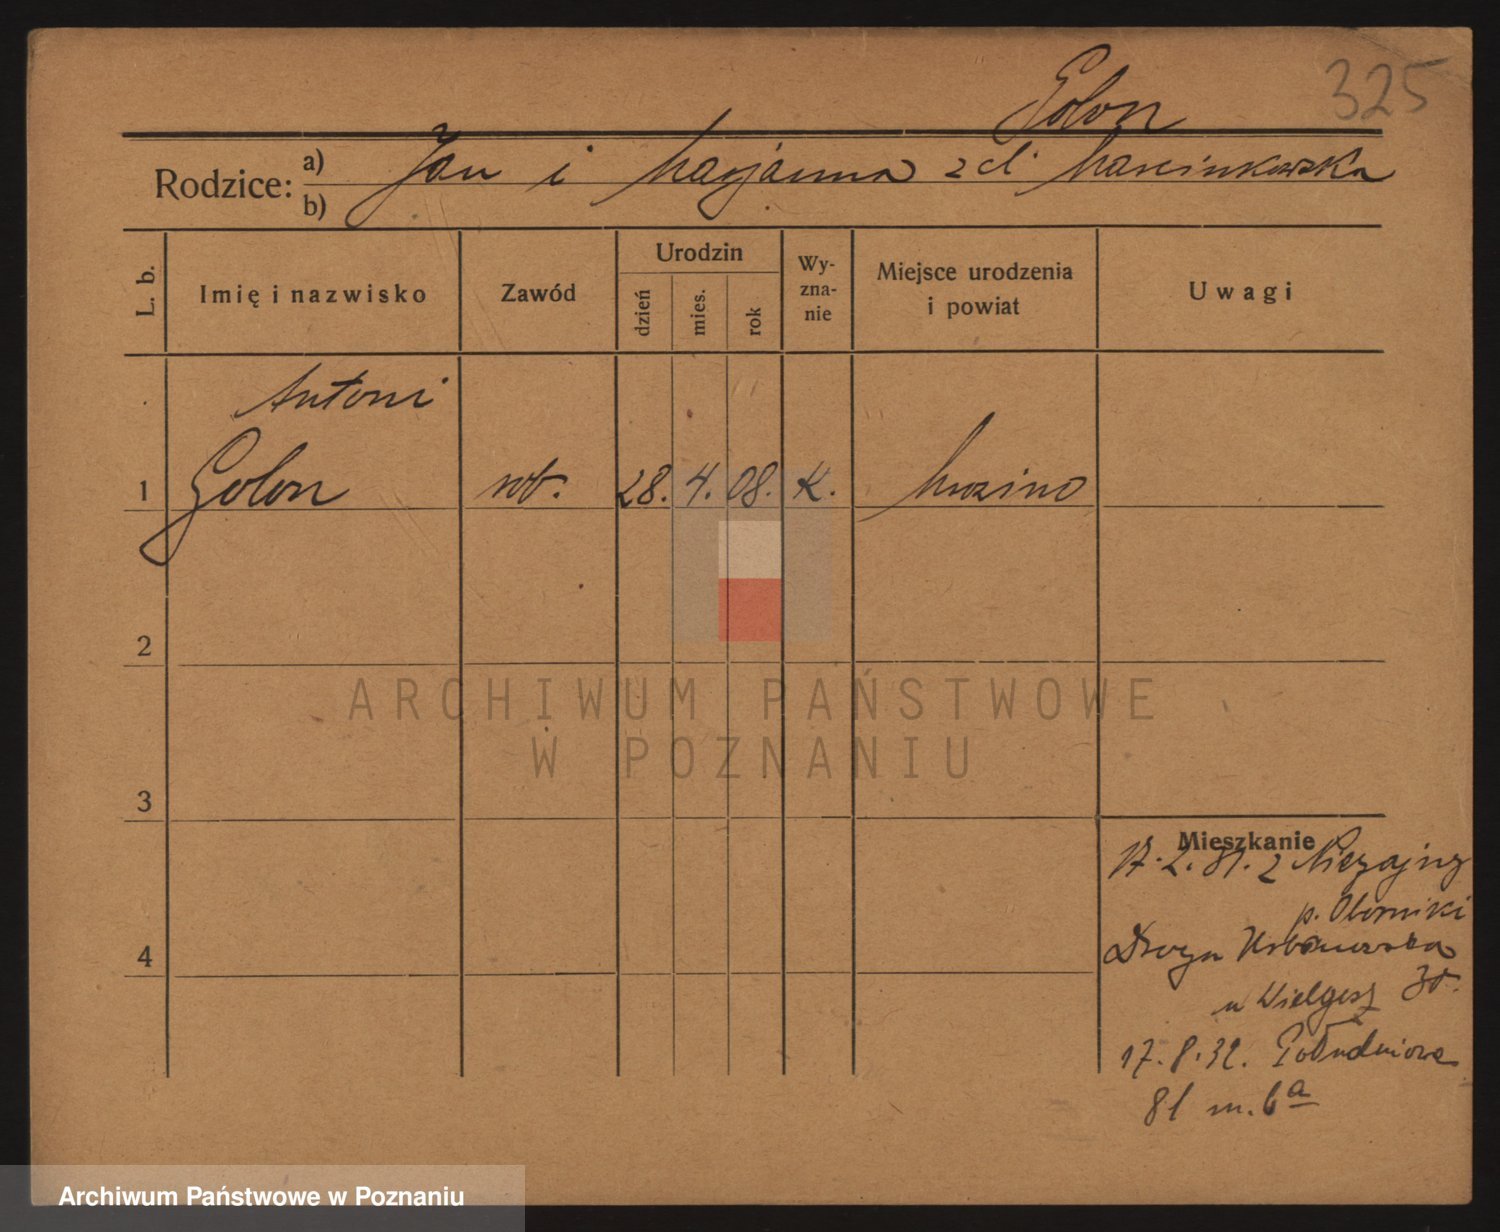 325
Golon
Rodzice: a) Jan i Marjanna z d. Marcinkowska
b)
L. b. Imię i nazwisko Zawód Urodzin dzień mies. rok Wy-zna-nie Miejsce urodzenia i powiat Uwagi
Antoni
1 Golon rob. 28. 4. 08. K.
2
ARCHIWUM PAŃSTWOWE
W POZNANIU
3
Mieszkanie
17. 2. 31. z
p. Oborniki
4 Droga Urbanowska
u Wielgosz 30.
17. 8. 32. Południowa
81 m. 6a
Archiwum Państwowe w Poznaniu